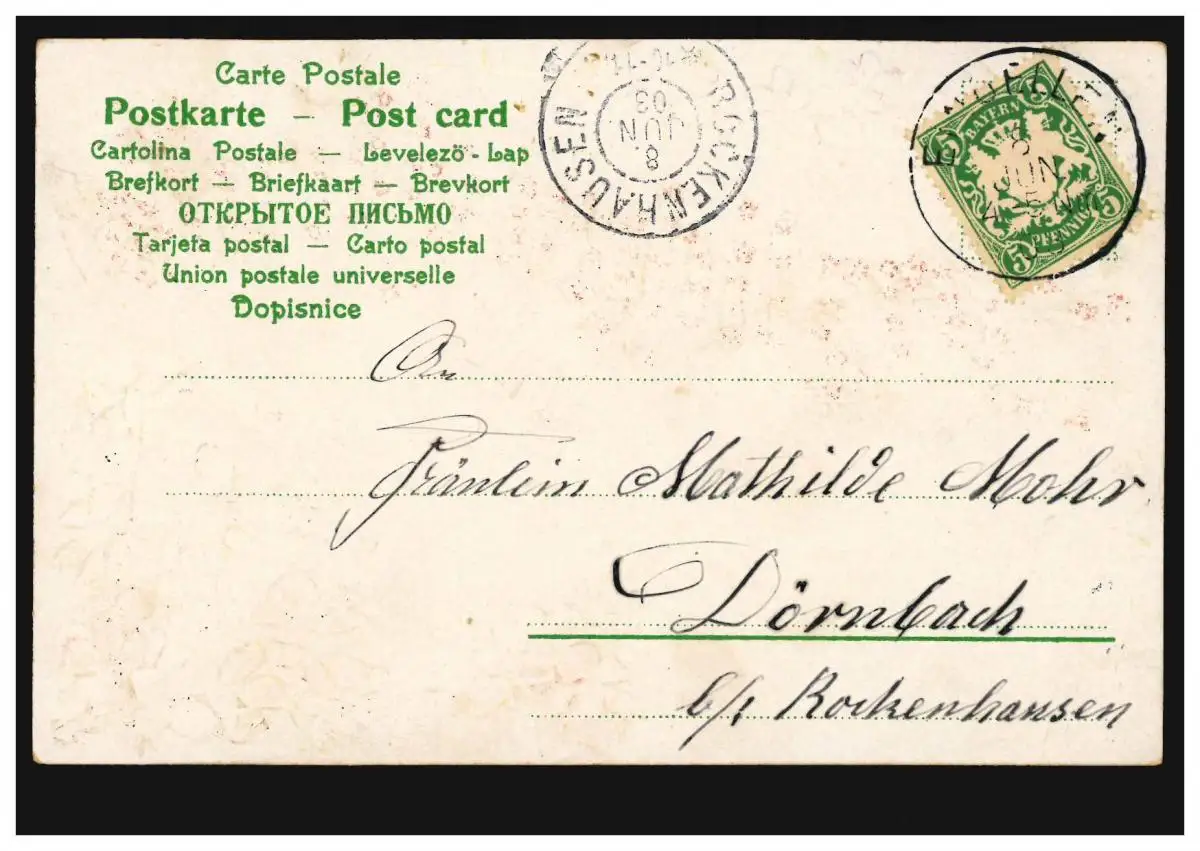 Carte Postale
Postkarte – Post card
Cartolina Postale – Levelező-Lap
Brefkort – Briefkaart – Brevkort
ОТКРЫТОЕ ПИСЬМО
Tarjeta postal – Carto postal
Union postale universelle
Dopisnice
ROCKENHAUSEN
8
JUN
03
BAYERN
5
5
5
5
PFENNIG
8
JUN
An
Fräulein Mathilde Mohr
Dörnbach
b/: Rockenhausen